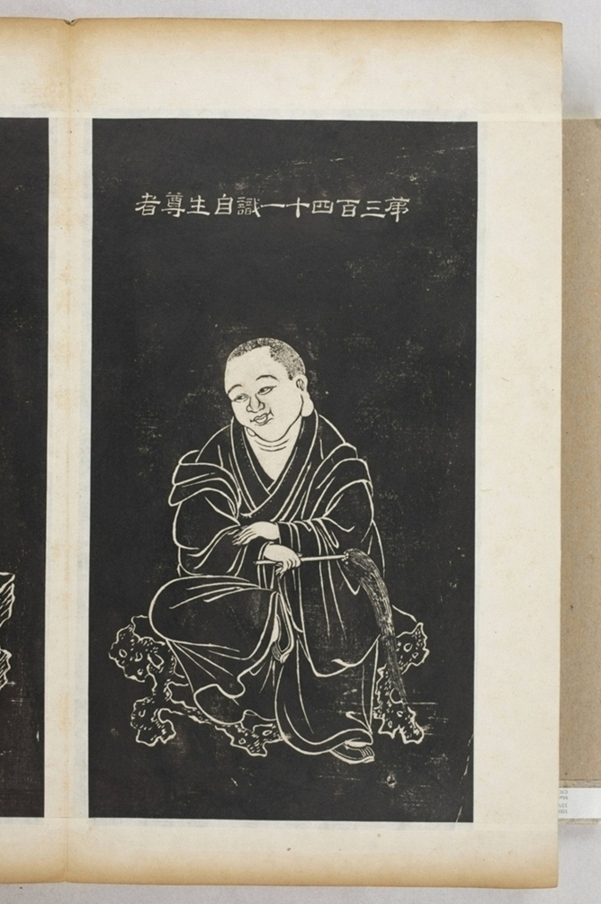 第三百四十一識自生尊者